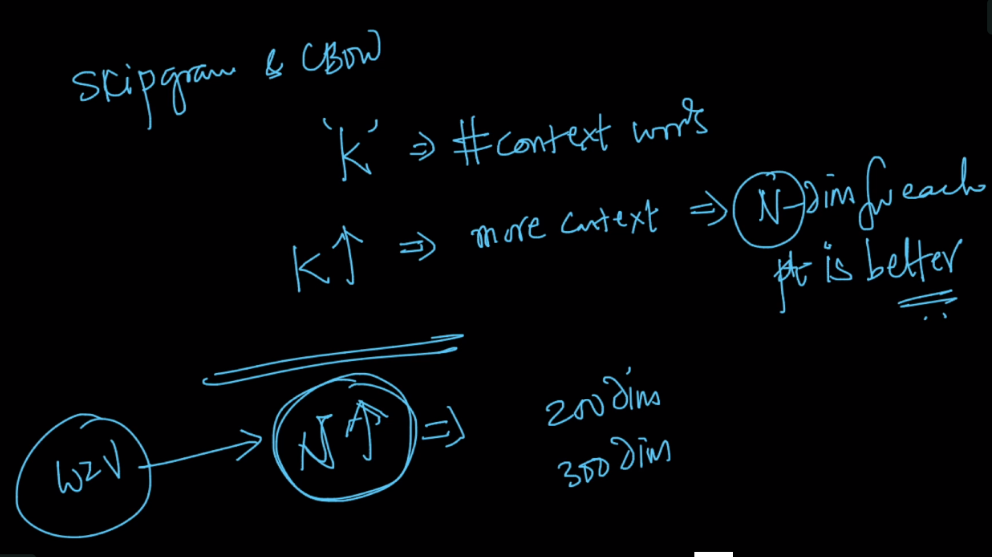 Skipgram & CBOW
'K' ⇒ #context words
K↑ ⇒ more context ⇒ N-dim for each
pt is better
W2V → N↑ ⇒ 200 dims
300 dim